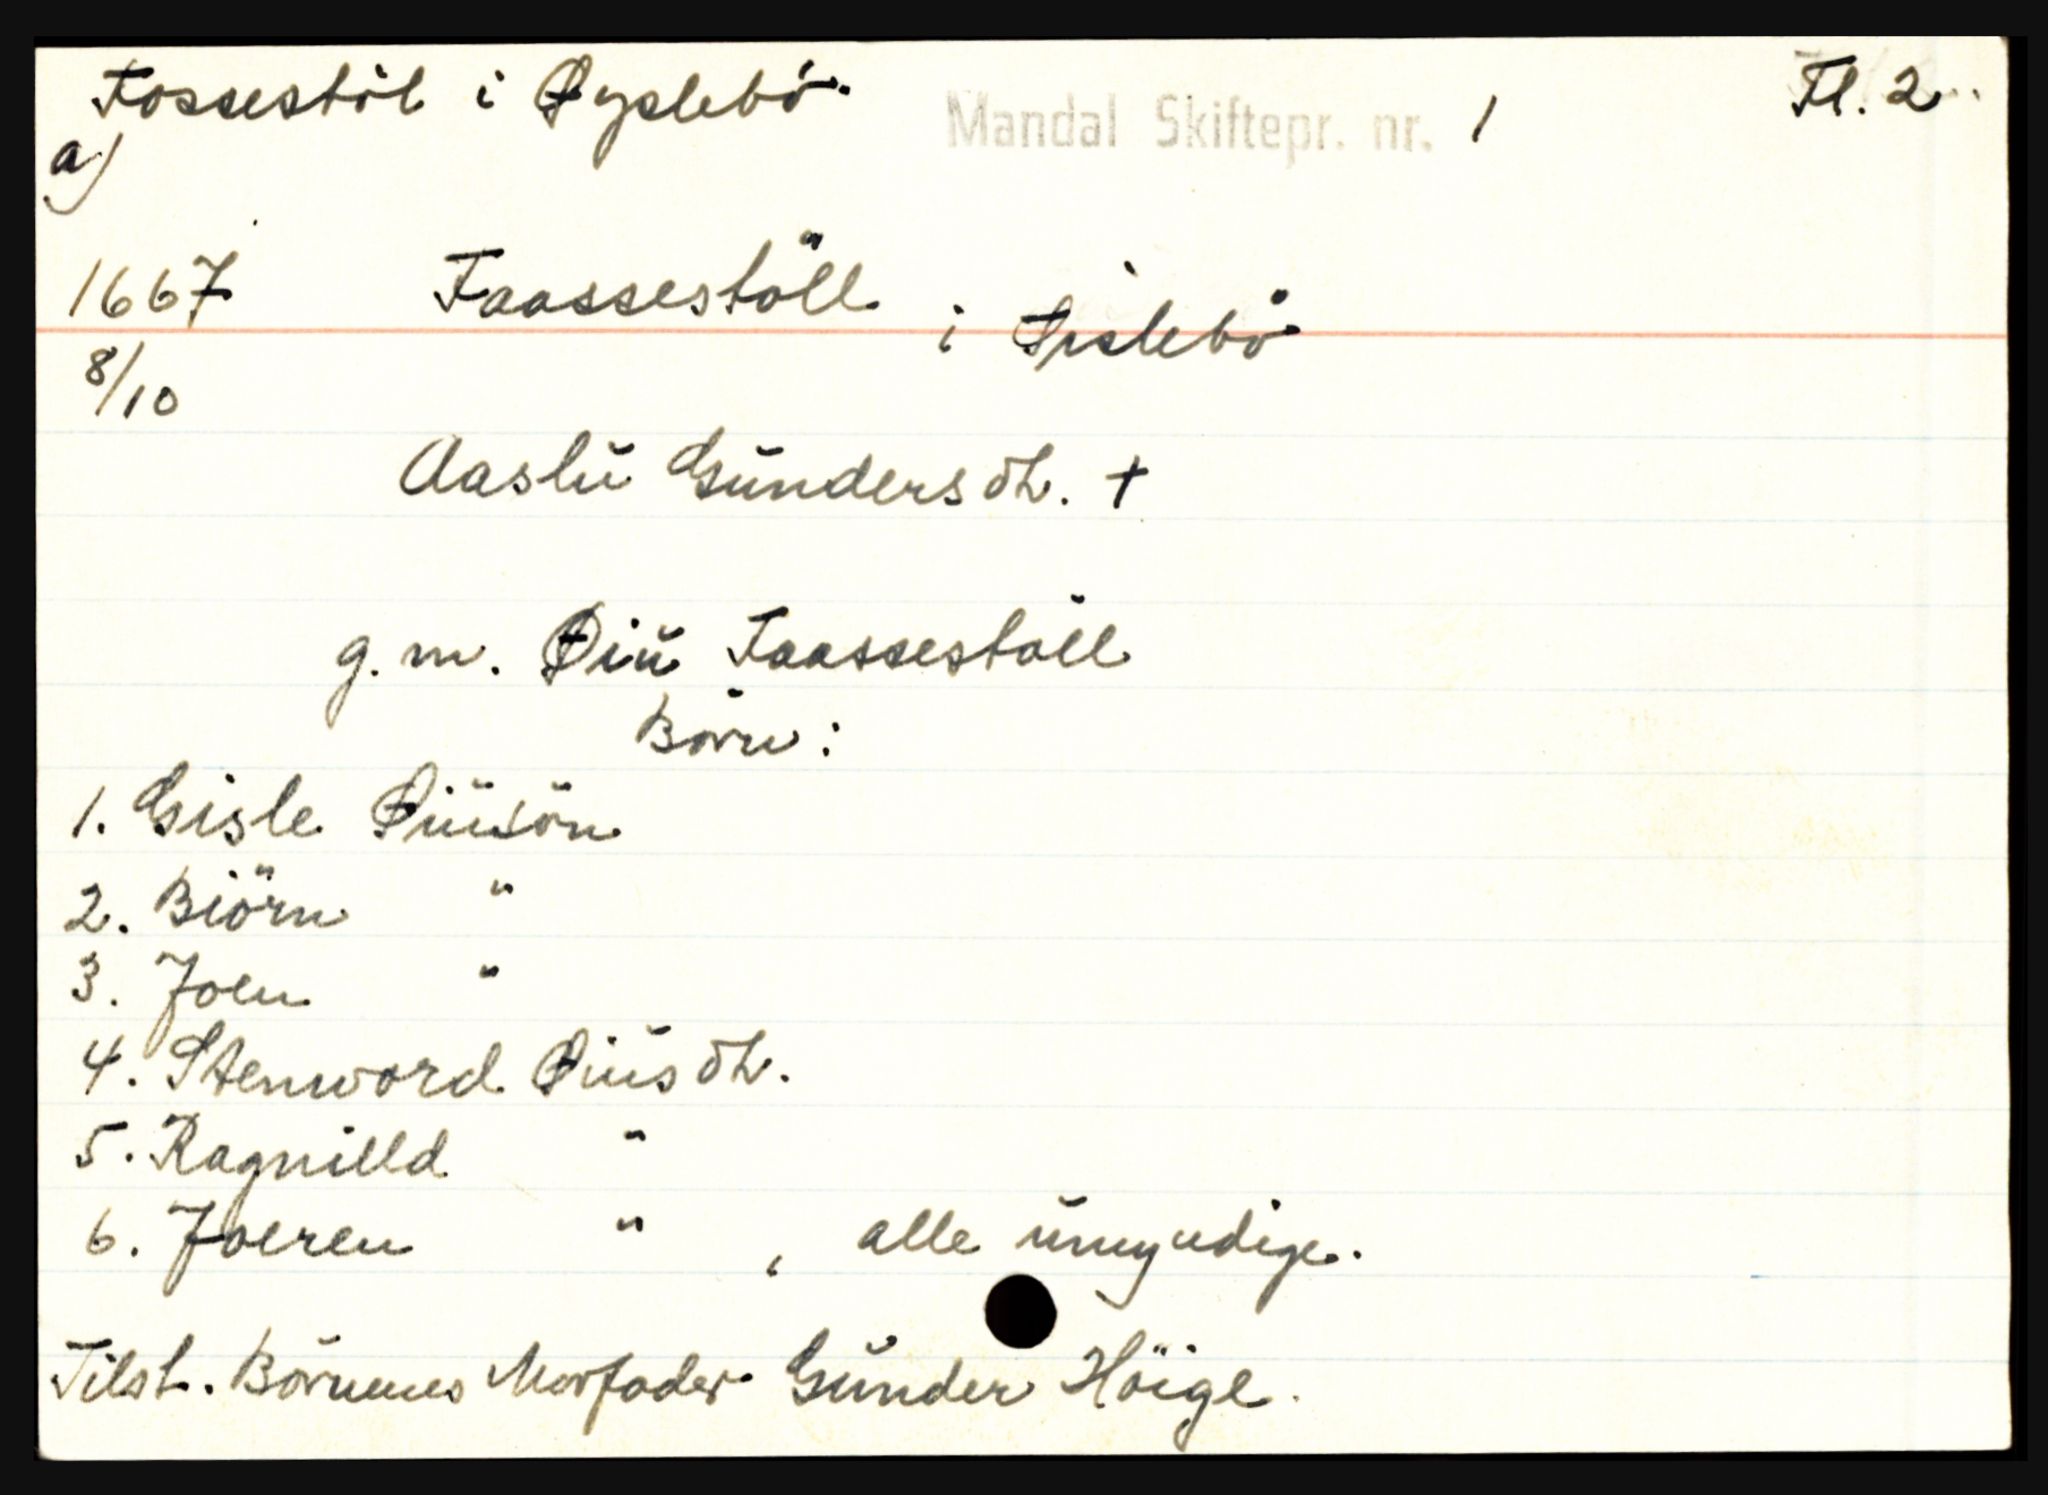 Fossestöl i Øyslebö. Mandal Skiftepr. nr. 1 Fl. 2
a)
1667 Faassestöll i Øislebö
8/10
Aaslŭ Gŭndersdt. †
g. m. Øiŭ Faassestöll
Börn:
1. Gisle Øiŭsön
2. Biörn "
3. Joen "
4. Stenword Øiŭsdt.
5. Ragnilld "
6. Joeren " , alle ŭmyndige.
Tilst. Börnenes Morfader Gŭnder Höige.